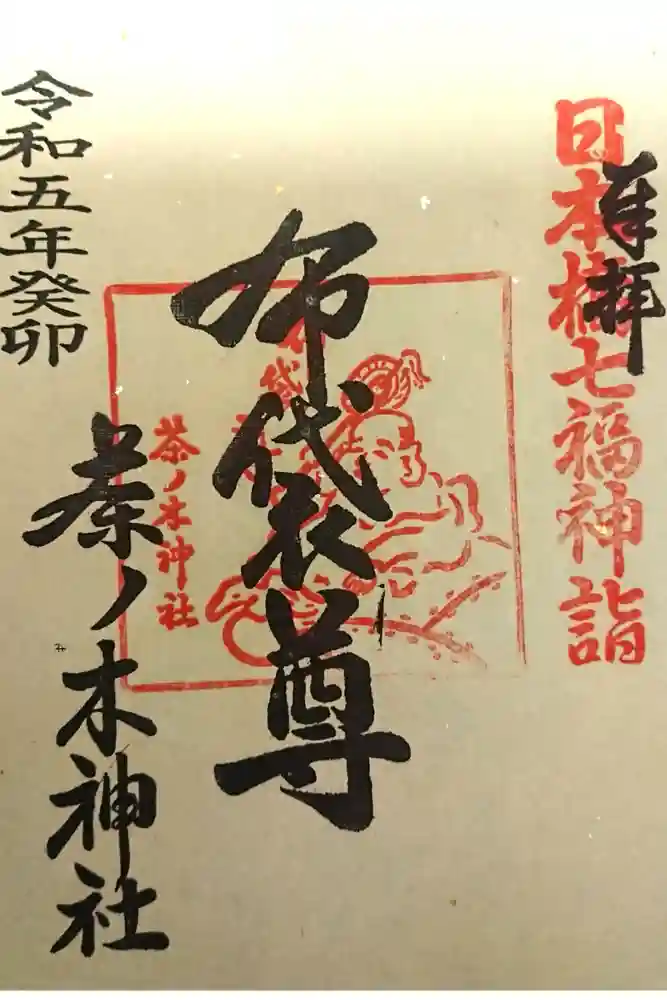 日本橋七福神詣
奉拝
布袋尊
茶ノ木神社
茶ノ木神社
令和五年癸卯